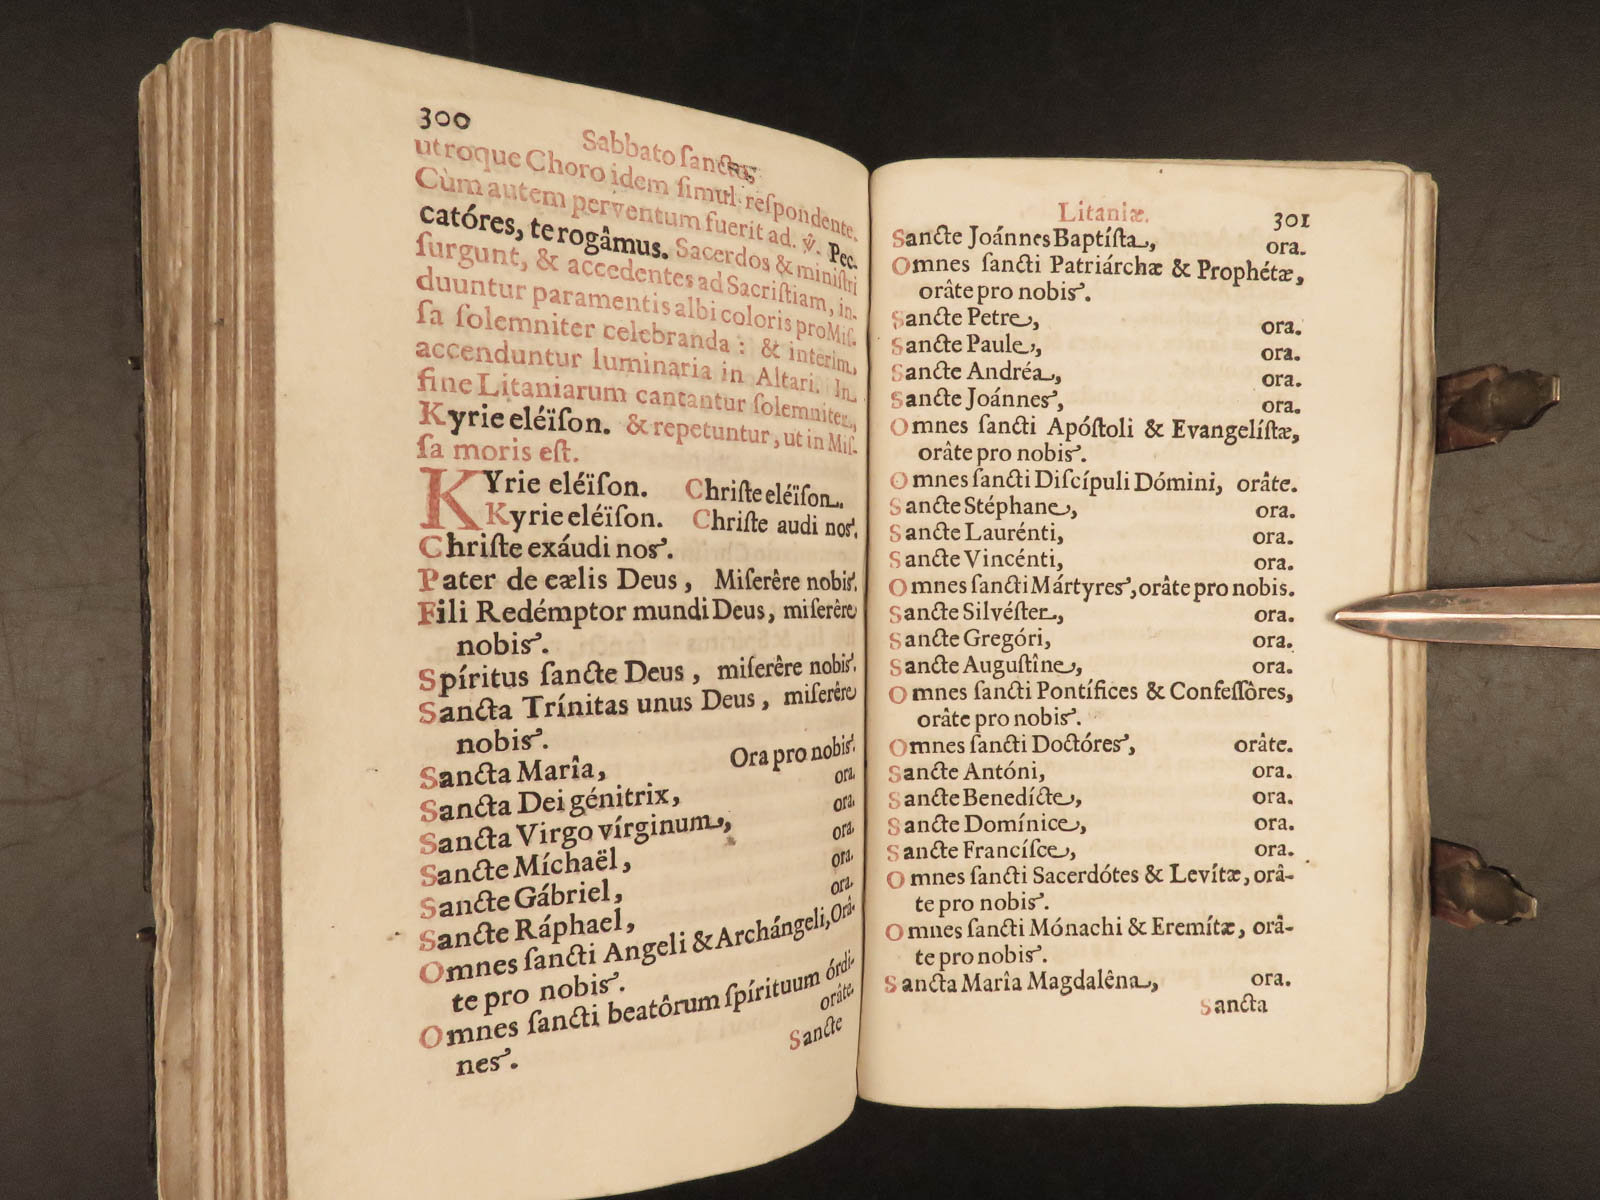 300
Sabbato sancto,
utroque Choro idem simul respondente.
Cùm autem perventum fuerit ad. ℣. Pec-
catóres, te rogâmus. Sacerdos & ministri
surgunt, & accedentes ad Sacristiam, in-
duuntur paramentis albi coloris pro Mis-
sa solemniter celebranda : & interim
accenduntur luminaria in Altari. In
fine Litaniarum cantantur solemniter,
Kyrie eléïson. & repetuntur, ut in Mis-
sa moris est.
KYrie eléïson. Christe eléïson.
Kyrie eléïson. Christe audi nos.
Christe exáudi nos.
Pater de cælis Deus, Miserêre nobis.
Fili Redémptor mundi Deus, miserêre
nobis.
Spíritus sancte Deus, miserêre nobis.
Sancta Trínitas unus Deus, miserêre
nobis.
Sancta Marîa, Ora pro nobis.
Sancta Dei génitrix, ora.
Sancta Virgo vírginum, ora.
Sancte Míchaël, ora.
Sancte Gábriel, ora.
Sancte Ráphael, ora.
Omnes sancti Angeli & Archángeli, Orâ-
te pro nobis.
Omnes sancti beatôrum spírituum órdi-
nes. orâte.
Sancte
Litaniæ. 301
Sancte Joánnes Baptísta, ora.
Omnes sancti Patriárchæ & Prophétæ,
orâte pro nobis.
Sancte Petre, ora.
Sancte Paule, ora.
Sancte Andréa, ora.
Sancte Joánnes, ora.
Omnes sancti Apóstoli & Evangelístæ,
orâte pro nobis.
Omnes sancti Discípuli Dómini, orâte.
Sancte Stéphane, ora.
Sancte Laurénti, ora.
Sancte Vincénti, ora.
Omnes sancti Mártyres, orâte pro nobis.
Sancte Silvéster, ora.
Sancte Gregóri, ora.
Sancte Augustîne, ora.
Omnes sancti Pontífices & Confessôres,
orâte pro nobis.
Omnes sancti Doctóres, orâte.
Sancte Antóni, ora.
Sancte Benedícte, ora.
Sancte Domínice, ora.
Sancte Francísce, ora.
Omnes sancti Sacerdótes & Levítæ, orâ-
te pro nobis.
Omnes sancti Mónachi & Eremítæ, orâ-
te pro nobis.
Sancta Marîa Magdalêna, ora.
Sancta